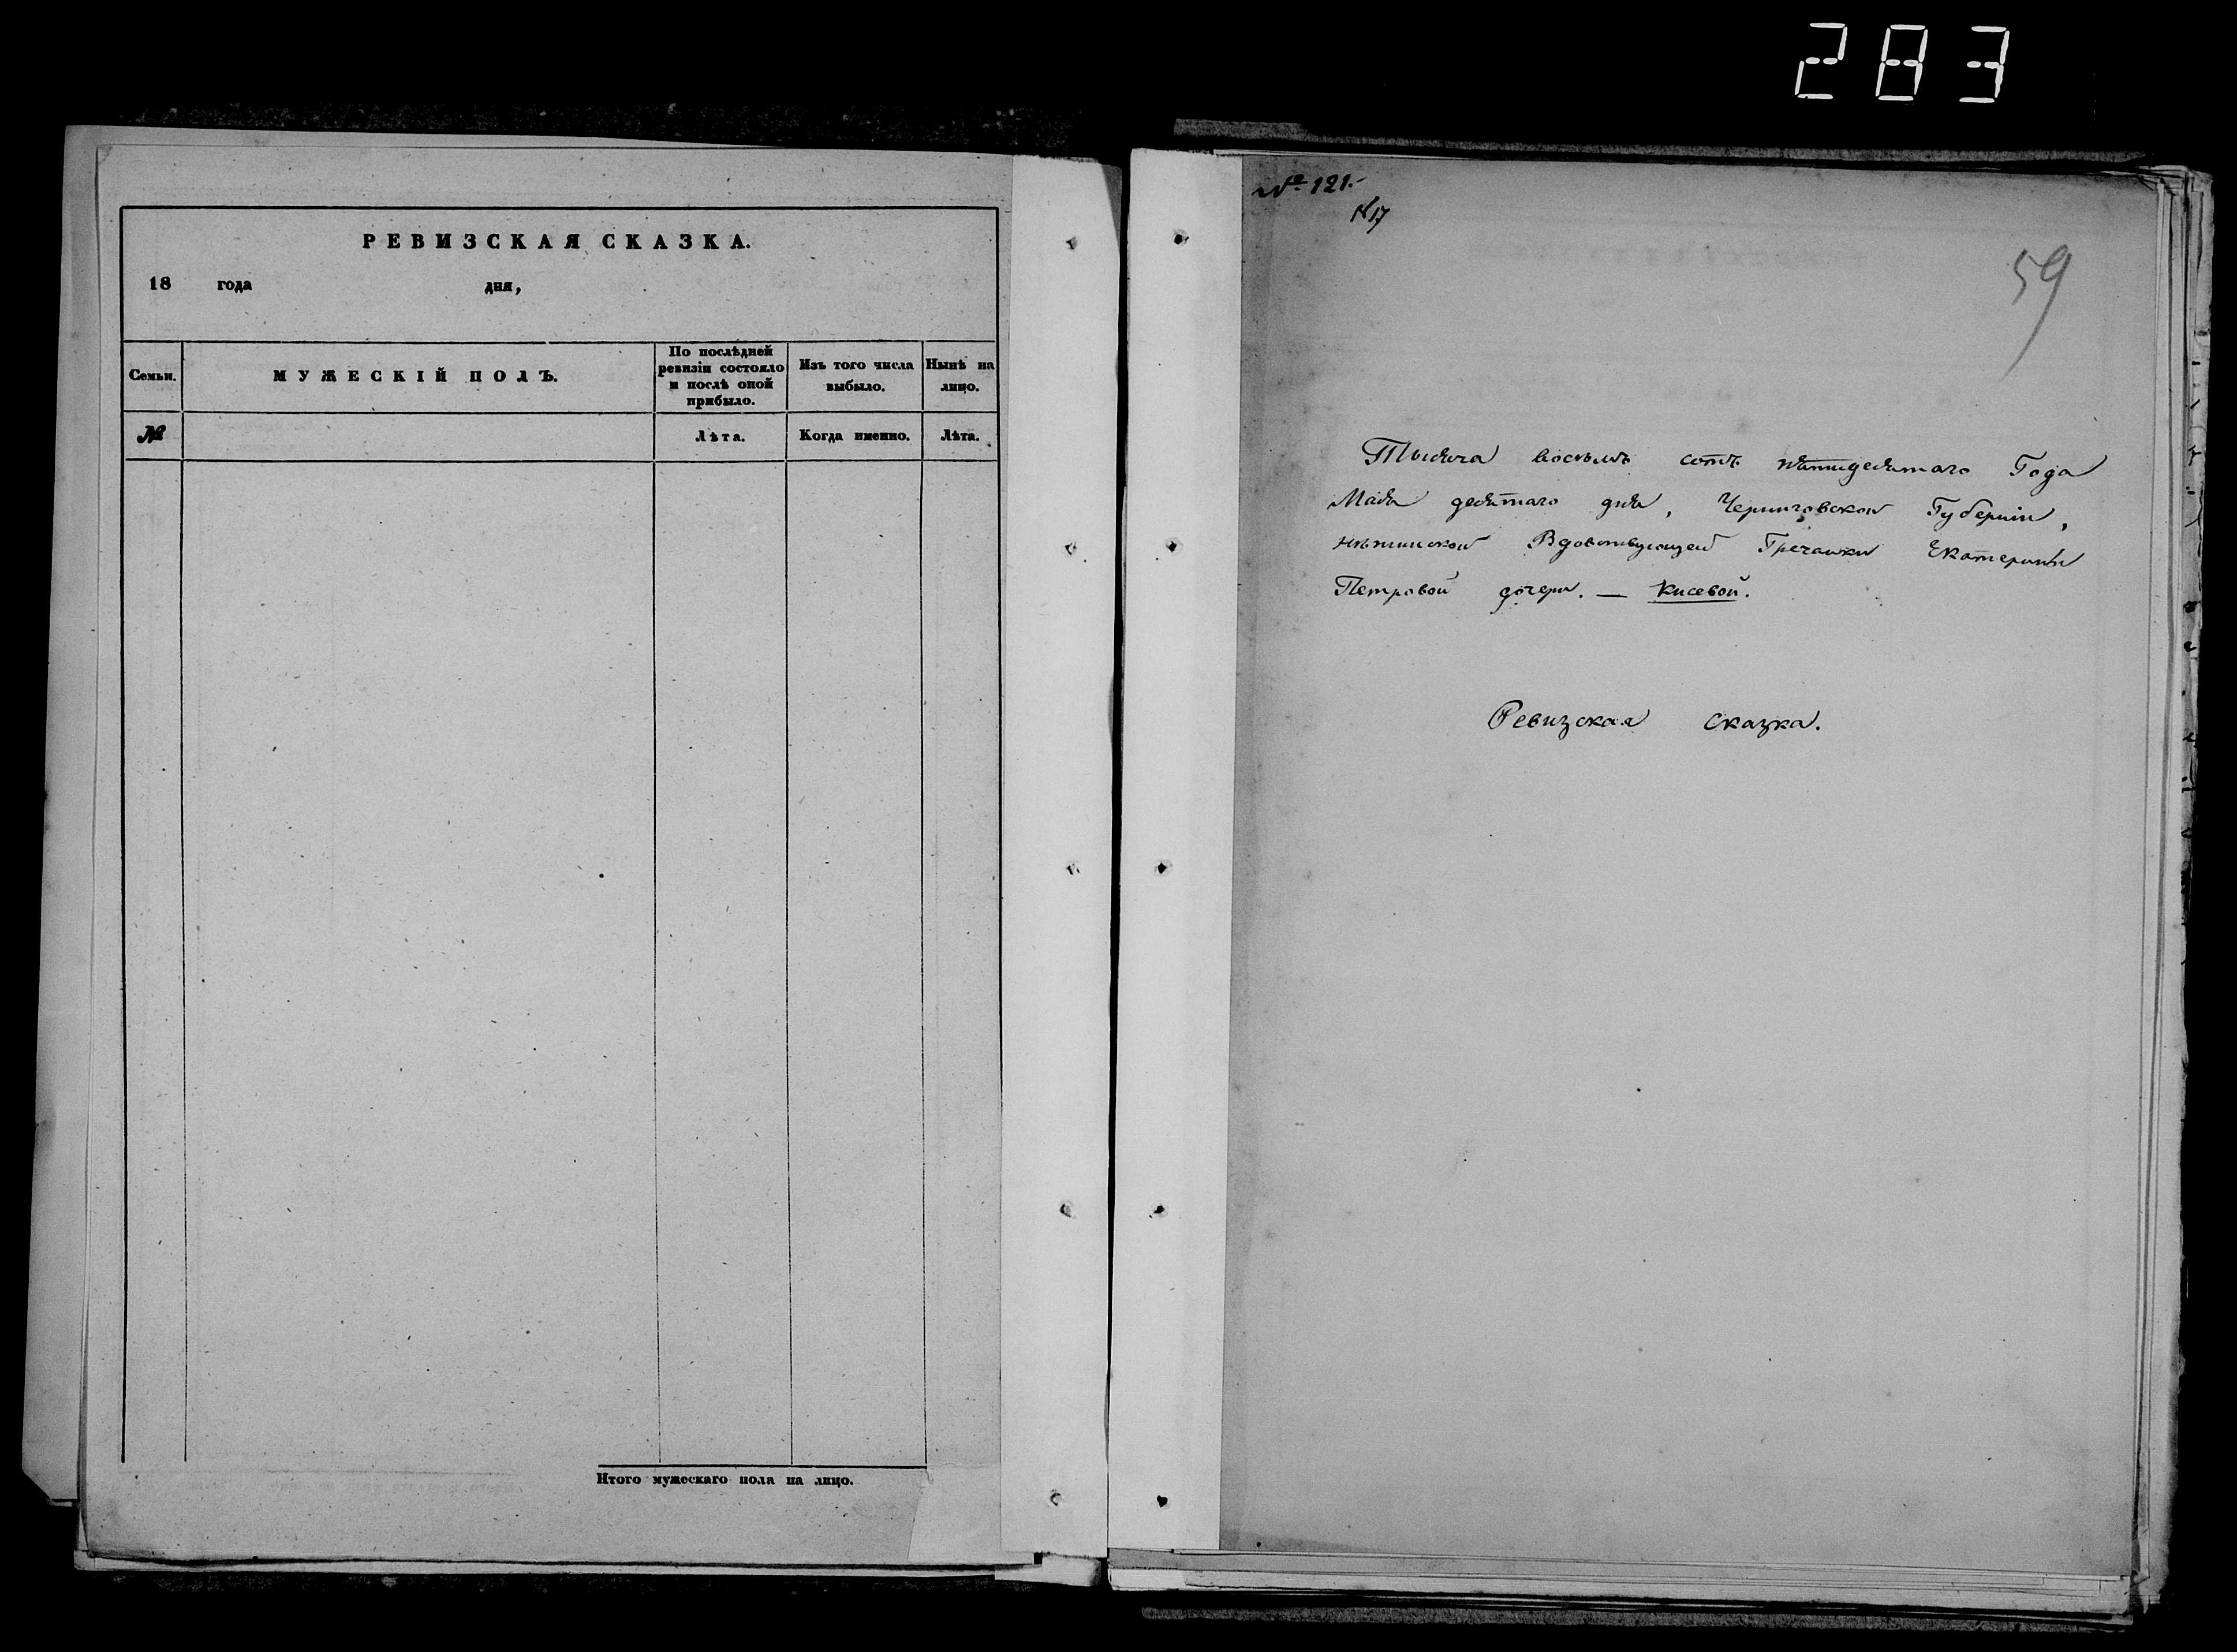 283
РЕВИЗСКАЯ СКАЗКА.
18 года дня,
Семьи.
МУЖЕСКІЙ ПОЛЪ.
По послѣдней
ревизіи состояло
и послѣ оной
прибыло.
Изъ того числа
выбыло.
Нынѣ на
лицо.
№
Лѣта.
Когда именно.
Лѣта.
Итого мужескаго пола на лицо.
№ 121.-
№ 17
59
Тысяча восемь сотъ пятидесятаго Года
Маія десятаго дня, Черниговской Губерніи,
нѣжинской Вдовствующей Гречанки Екатерины
Петровой дочери. — Кисевой.
Ревизская сказка.